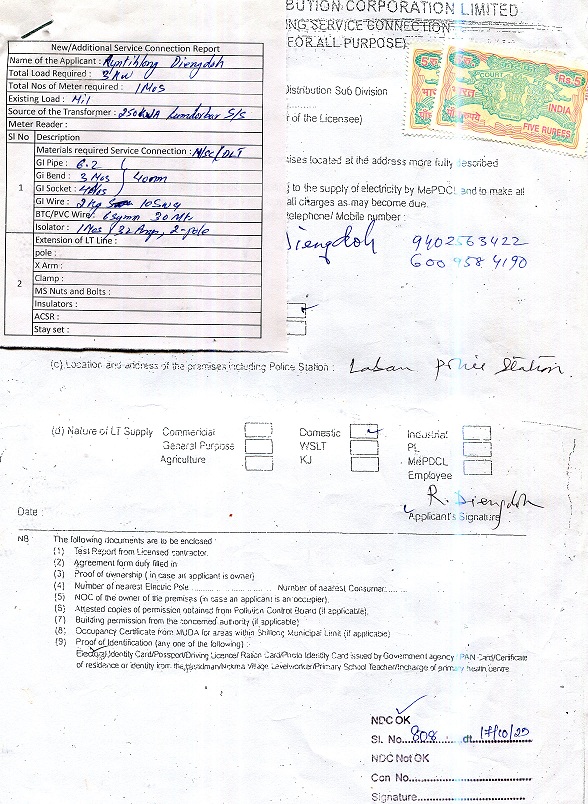 BUTION CORPORATION LIMITED
NG SERVICE CONNECTION
(FOR ALL PURPOSE)
New/Additional Service Connection Report
Name of the Applicant : Ryntihlong Diengdoh
Total Load Required : 3 KW
Total Nos of Meter required : 1 Nos
Existing Load : Nil
Source of the Transformer : 250 KVA Lumdorbar S/s
Meter Reader :
Sl No Description
Materials required Service Connection :
1
GI Pipe : 6.2
GI Bend : 3 Nos 40mm
GI Socket : 4 Nos
GI Wire : 2 kg 10 swg
BTC/PVC Wire/ 6 sqmm 30 Mt
Isolator : 1 Nos 32 Amp, 2-pole
2
Extension of LT Line :
pole :
X Arm :
Clamp :
MS Nuts and Bolts :
Insulators :
ACSR :
Stay set :
COURT
Rs.5
INDIA
FIVE RUPEES
istribution Sub Division
r of the Licensee)
ises located at the address more fully described
to the supply of electricity by MePDCL and to make all
all charges as may become due.
telephone/ Mobile number :
Diengdoh 9402563422
600 958 4190
(c) Location and address of the premises including Police Station : Laban police Station.
(d) Nature of LT Supply Commercial Domestic Industrial
General Purpose WSLT PL
Agriculture KJ MePDCL
Employee
R. Diengdoh
Applicant's Signature
Date :
NB : The following documents are to be enclosed :
(1) Test Report from Licensed contractor.
(2) Agreement form duly filled in
(3) Proof of ownership ( in case an applicant is owner)
(4) Number of nearest Electric Pole .................... Number of nearest Consumer...........
(5) NOC of the owner of the premises (in case an applicant is an occupier).
(6) Attested copies of permission obtained from Pollution Control Board (if applicable).
(7) Building permission from the concerned authority (if applicable)
(8) Occupancy Certificate from MUDA for areas within Shillong Municipal Limit (if applicable)
(9) Proof of Identification (any one of the following) :
Electoral Identity Card/Passport/Driving Licence/ Ration Card/Photo Identity Card issued by Government agency / PAN Card/Certificate
of residence or identity from the Headman/Nokma Village Levelworker/Primary School Teacher/Incharge of primary health centre
NDC OK
Sl. No. 808 dt. 17/10/25
NDC Not OK
Con No.
Signature